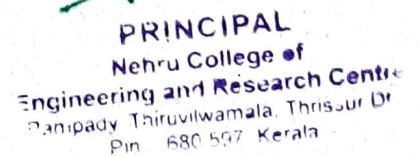 PRINCIPAL
Nehru College of
Engineering and Research Centre
Pampady Thiruvilwamala, Thrissur Dt
Pin 680 597 Kerala